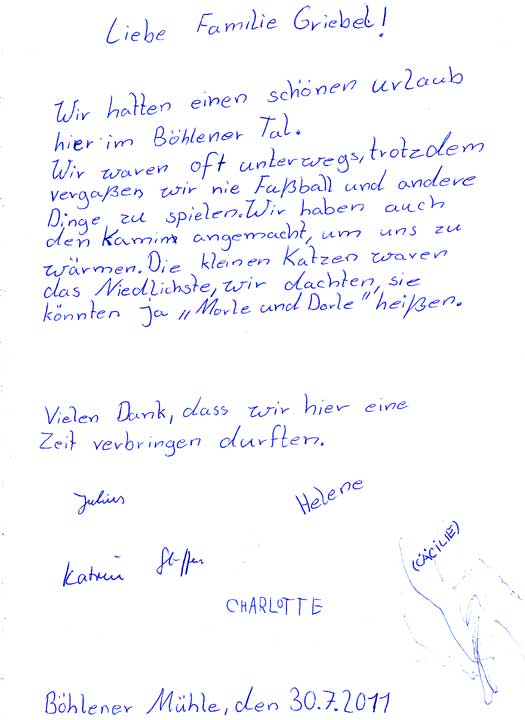 Liebe Familie Griebel!
Wir hatten einen schönen urlaub
hier im Böhlener Tal.
Wir waren oft unterwegs, trotzdem
vergaßen wir nie Fußball und andere
Dinge zu spielen. Wir haben auch
den Kamin angemacht, um uns zu
wärmen. Die kleinen Katzen waren
das Niedlichste, wir dachten, sie
könnten ja „Morle und Dorle" heißen.
Vielen Dank, dass wir hier eine
Zeit verbringen durften.
Julius Helene
Katrin Steffen
(CÄCILIE)
CHARLOTTE
Böhlener Mühle, den 30.7.2011